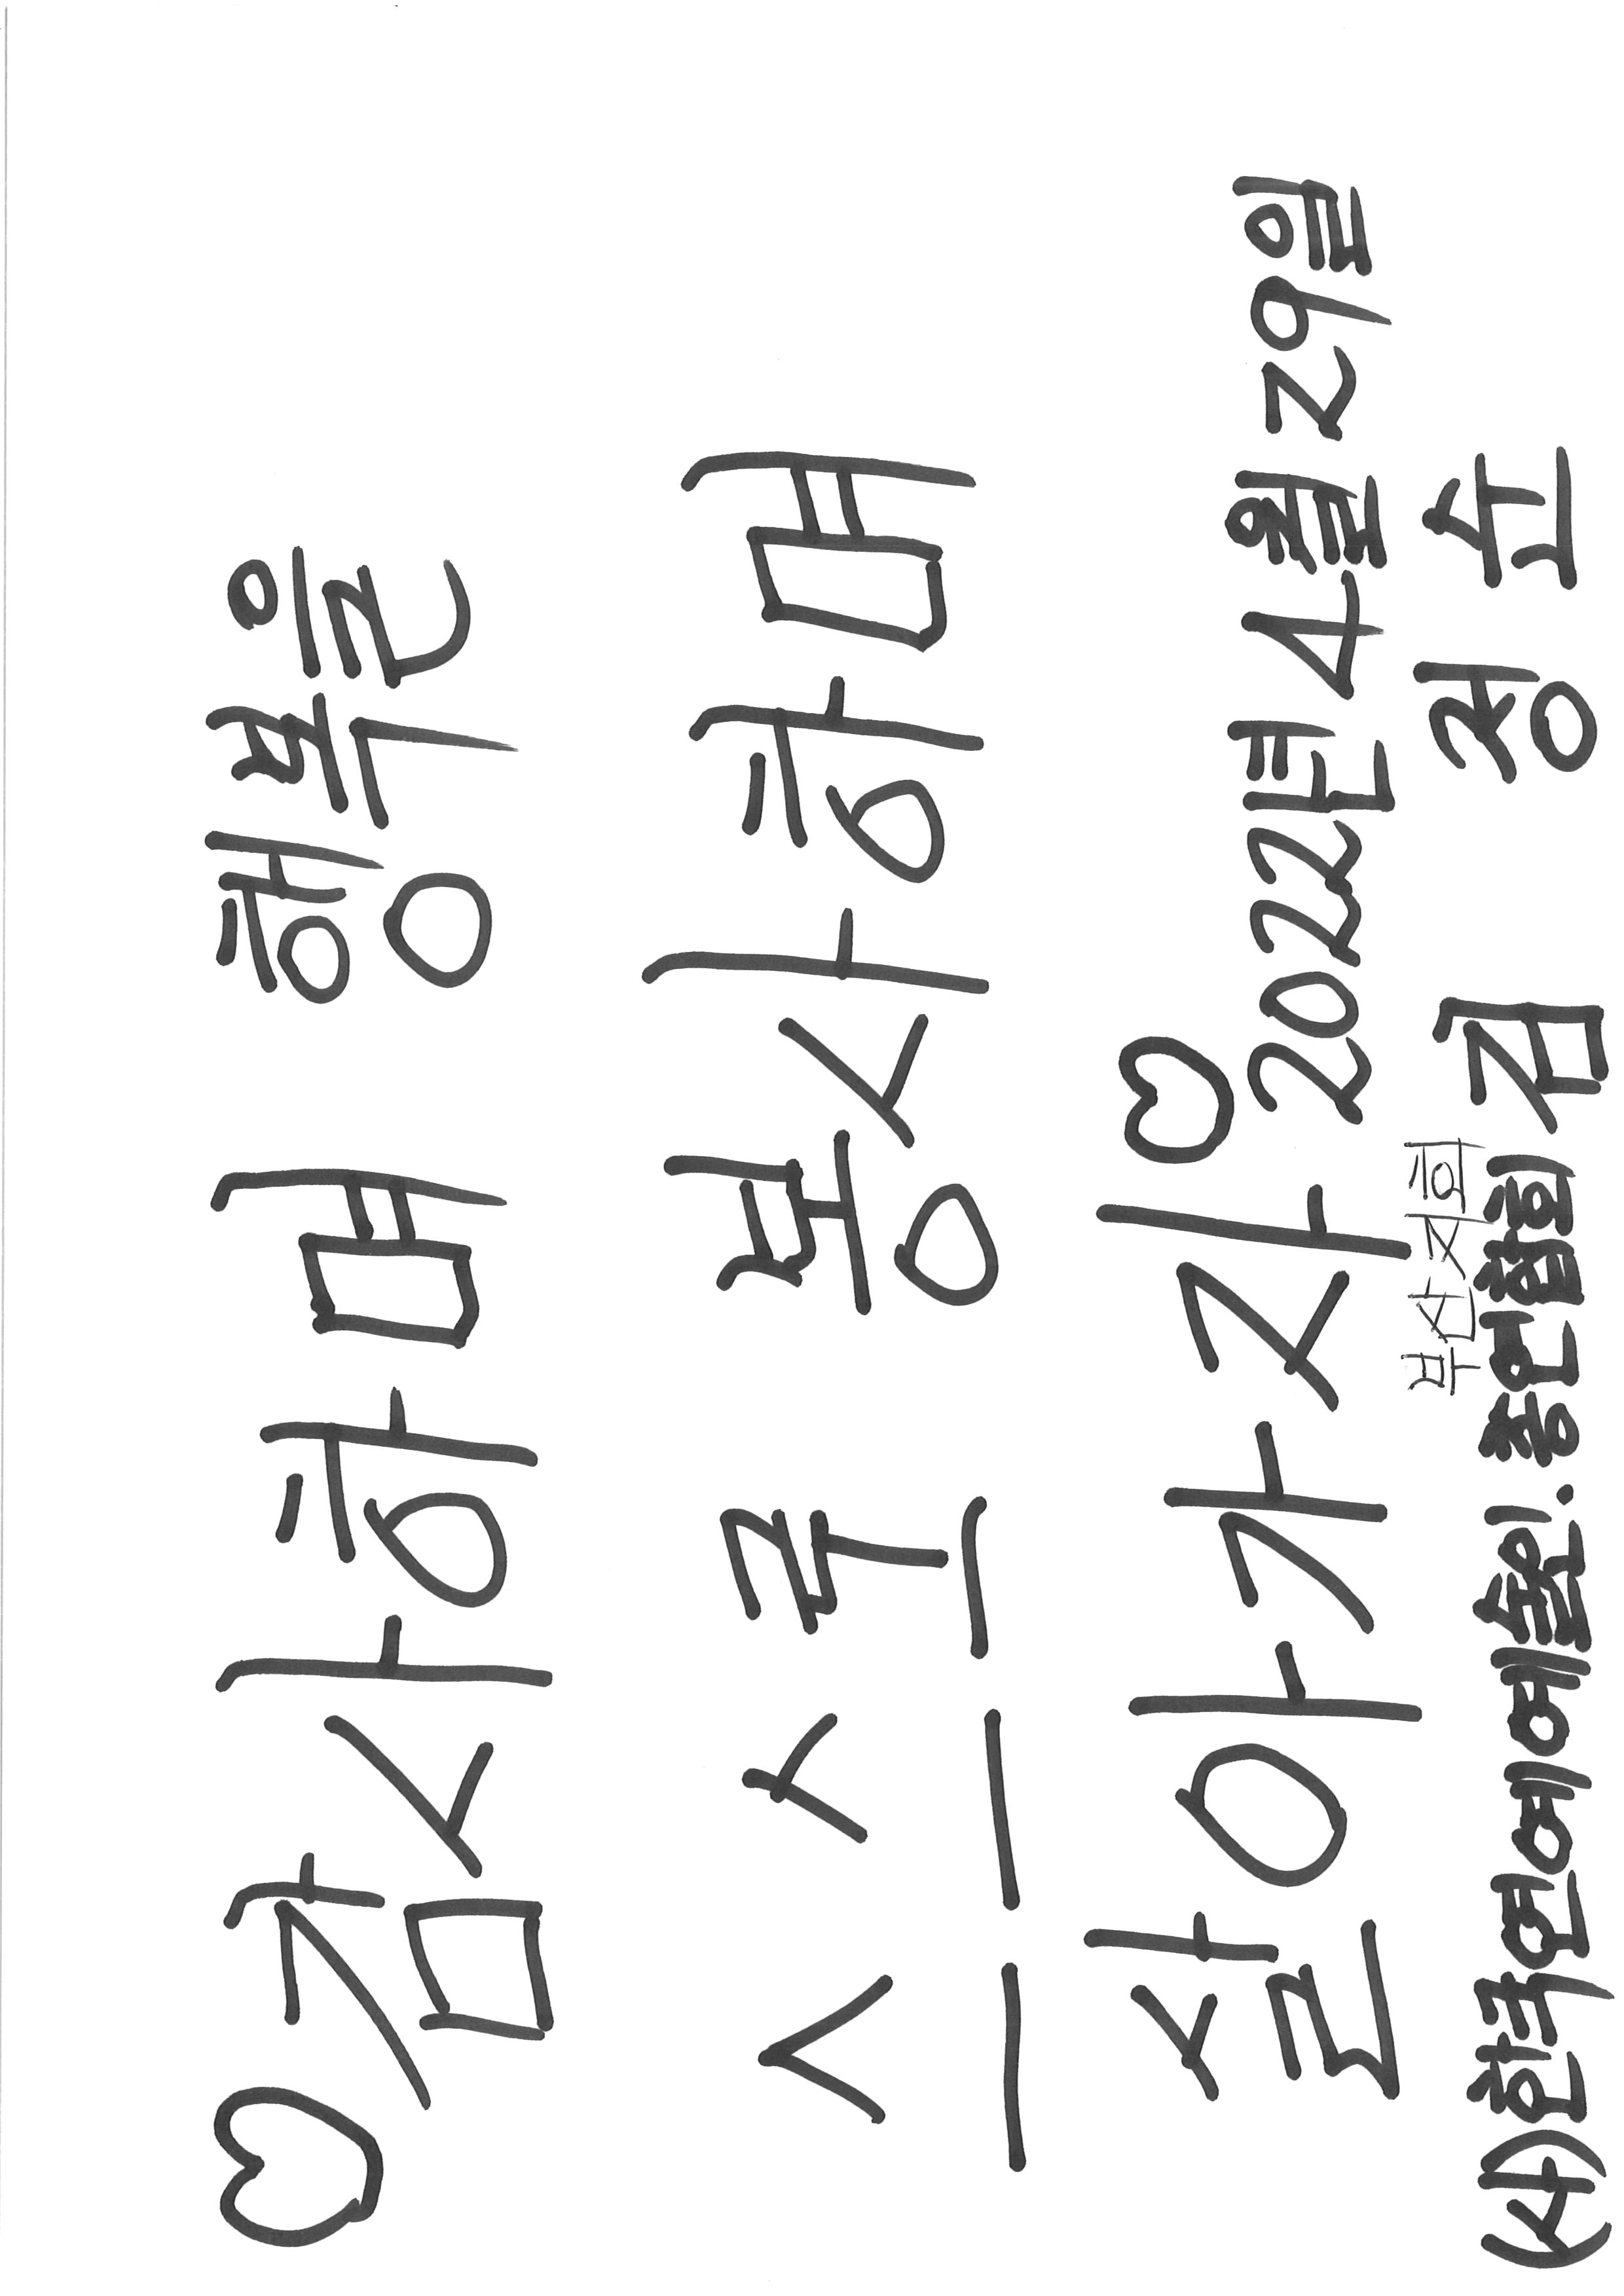 ♡감사하며 행복을
스스로 봉사하며
살아가자♡
2022년 4월 29일
부산지회
(사)한국연예예술인.총연합회 김 정 순